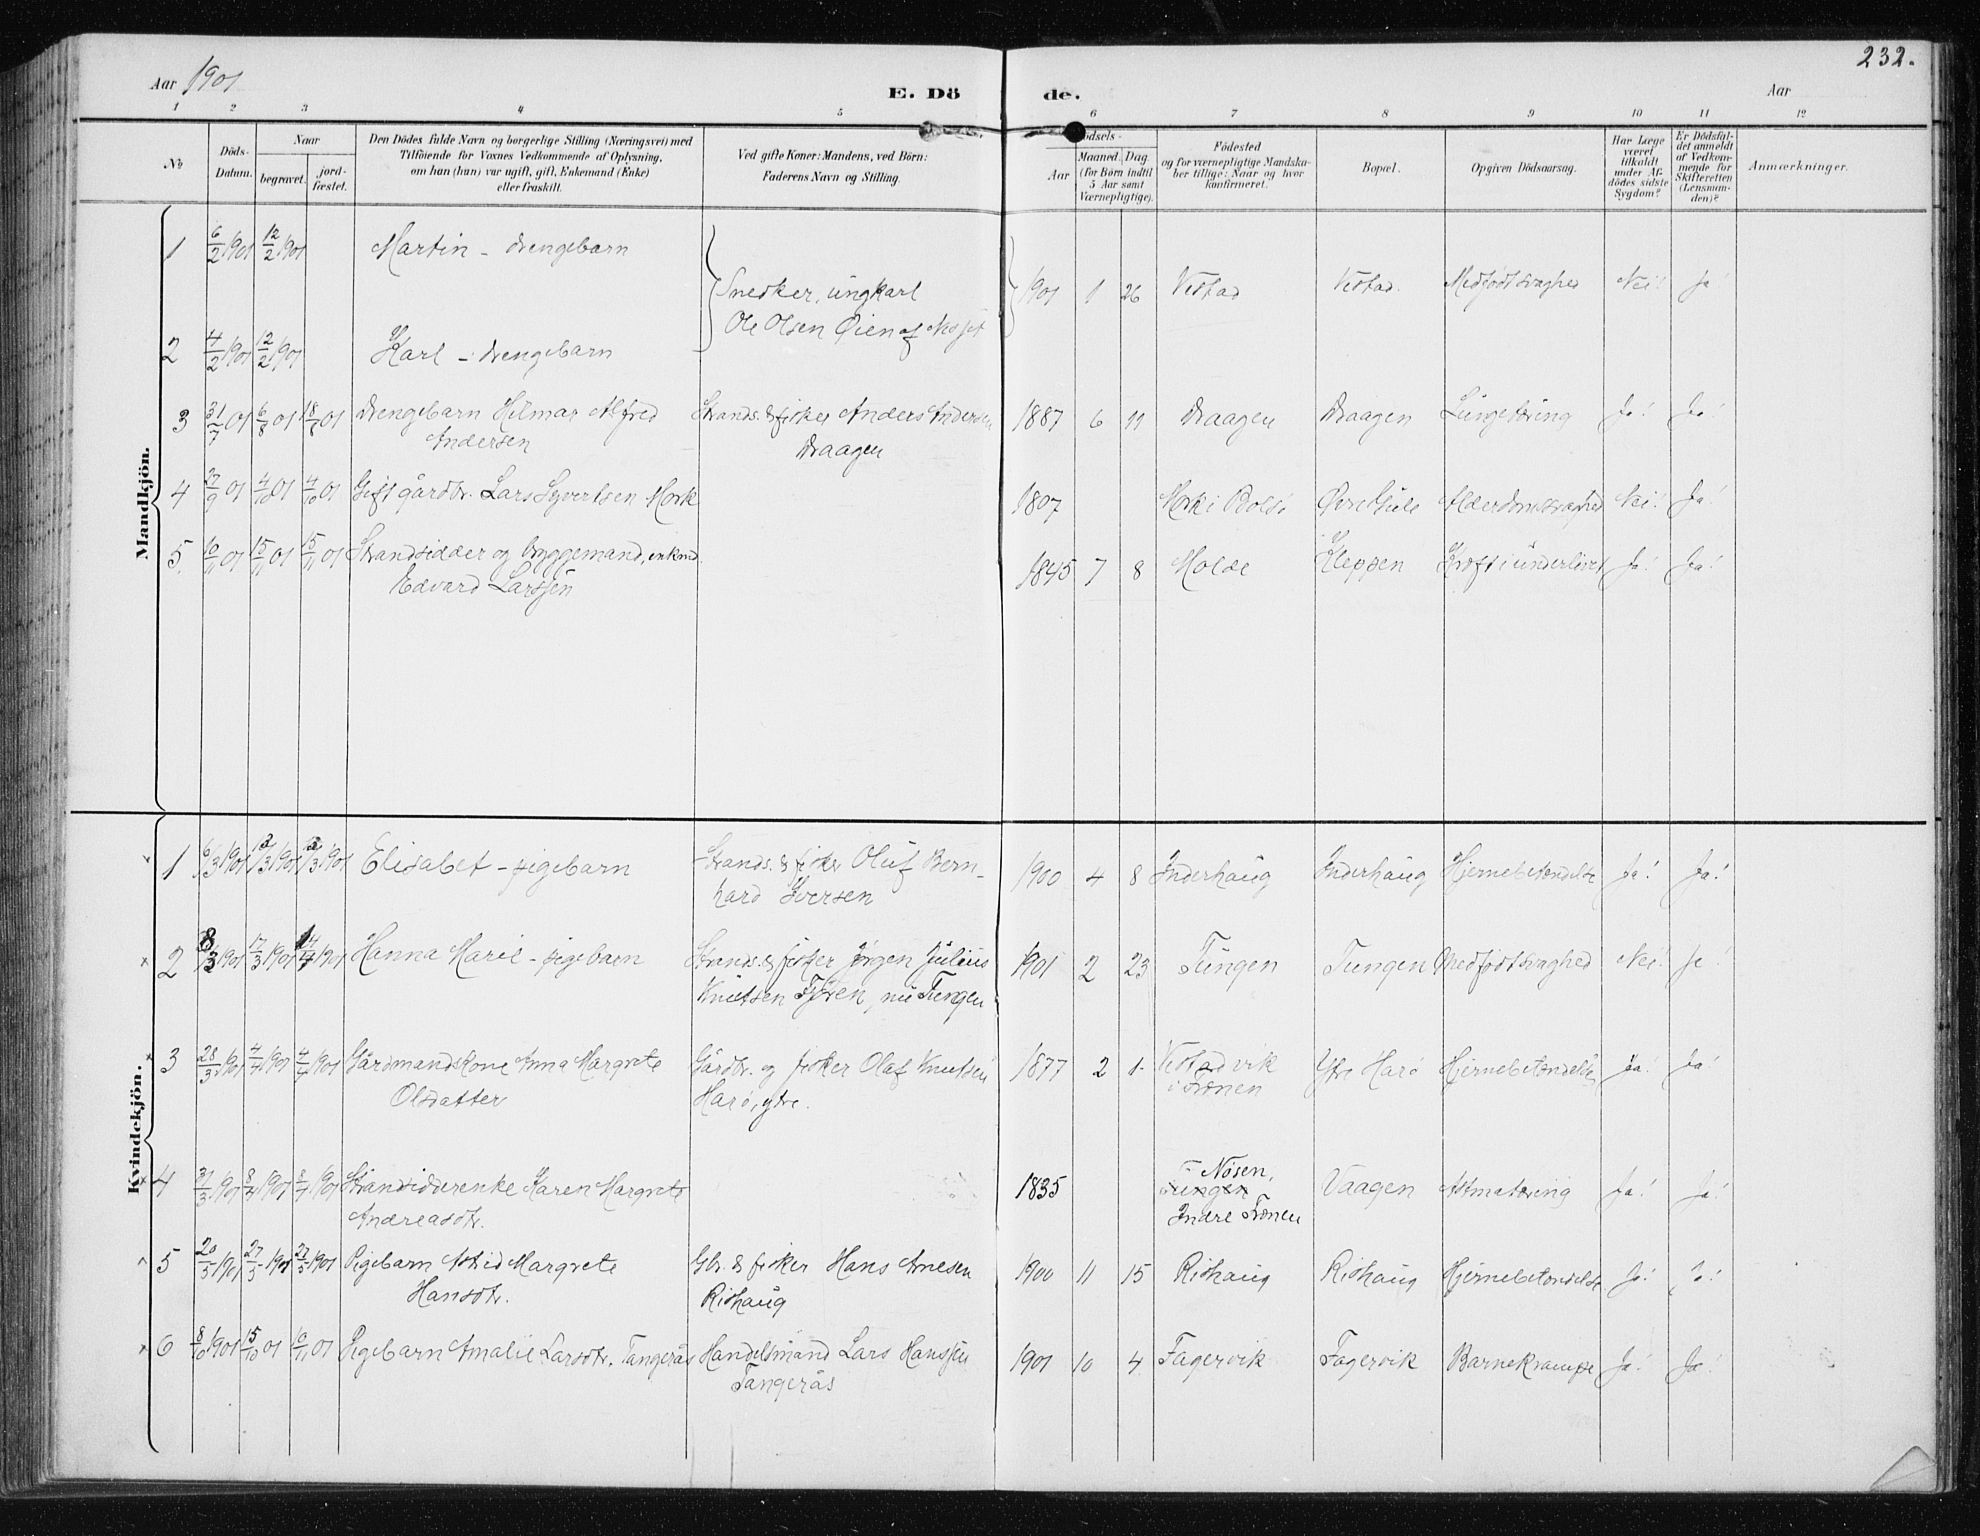 232.
Aar 1901
E. Dö
de.
Aar
1 2 3 4 5 6 7 8 9 10 11 12
No
Döds-
Datum.
Naar
begravet.
jord-
fæstet.
Den Dödes fulde Navn og borgerlige Stilling (Næringsvei) med
Tilföiende for Voxnes Vedkommende af Oplysning,
om han (hun) var ugift, gift, Enkemand (Enke)
eller fraskilt.
Ved gifte Koner: Mandens, ved Börn:
Faderens Navn og Stilling.
ödsels-
Aar
Maaned. Dag.
(for Börn indtil
5 Aar samt
Værnepligtige).
Födested
og for værnepligtige Mandska-
ber tillige: Naar og hvor
konfirmeret.
Bopæl.
Opgiven Dödsaarsag.
Har Læge
været
tilkaldt
under Af-
dödes sidste
Sygdom?
Er Dödsfal-
det anmeldt
af Vedkom-
mende for
Skifteretten
(Lensman-
den)?
Anmærkninger.
Mandkjön.
1 6/2 1901 12/2 1901 Martin - drengebarn
Snedker, ungkarl
Ole Olsen Øien af Nesset
1901 1 26 Vestad Vestad. Medfødt svaghed Nei! Ja
2 4/2 1901 12/2 1901 Karl - drengebarn
3 31/7 01 6/8 01 18/8 01 Drengebarn Hilmar Alfred Strands. & fisker Anders Andersen 1887 6 11 Draagen Draagen Lungetæring Ja! Ja!
Andersen Draagen
4 27/9 01 4/10 01 4/10 01 Gift gårdbr. Lars Syvertsen Mork 1807 Mork i Bolsø Øvre Hjule Alderdomssvaghed Nei! Ja!
5. 10/11 01 15/11 01 15/11 01 Strandsidder og bryggemand, enkmd. 1845 7 8 Molde Kleppen Kræft i underlivet Ja! Ja!
Edvard Larssen
Kvindekjön.
1 6/3 1901 13/3 1901 13/3 1901 Elisabet - pigebarn Strands. & fisker Oluf Bern- 1900 4 8 Inderhaug Inderhaug Hjernebetændelse Ja! Ja!
hard Iversen
2 8/3 1901 17/3 1901 14/4 1901 Hanna Marie - pigebarn Strands. & fisker Jørgen Julius 1901 2 23 Tungen Tungen Medfødt svaghed Nei! Ja!
Knutsen Fjøren, nu Tungen
3 28/3 1901 4/4 1901 4/4 1901 Gårdmandskone Anna Margrete Gårdbr. og fisker Olaf Knutsen 1877 2 1 Vestadvik Ytre Harø Hjernebetændelse Ja! Ja!
Olsdatter Harø, ytre. i Frænen
4 31/3 1901 8/4 1901 8/4 1901 Strandsidderenke Karen Margrete 1835 Nøsen, Vaagen Astmatæring Ja! Ja!
Andreasdtr. Tungen
Indre Frænen
5 20/5 1901 27/5 1901 27/5 1901 Pigebarn Astrid Margrete Gbr. & fisker Hans Arnesen 1900 11 15 Rishaug Rishaug Hjernebetændelse Ja! Ja!
Hansdtr. Rishaug
6 8/10 1901 15/10 01 10/11 01 Pigebarn Amalie Larsdtr. Tangerås Handelsmand Lars Hanssen 1901 10 4 Fagervik Fagervik Barnekrampe Ja! Ja!
Tangerås